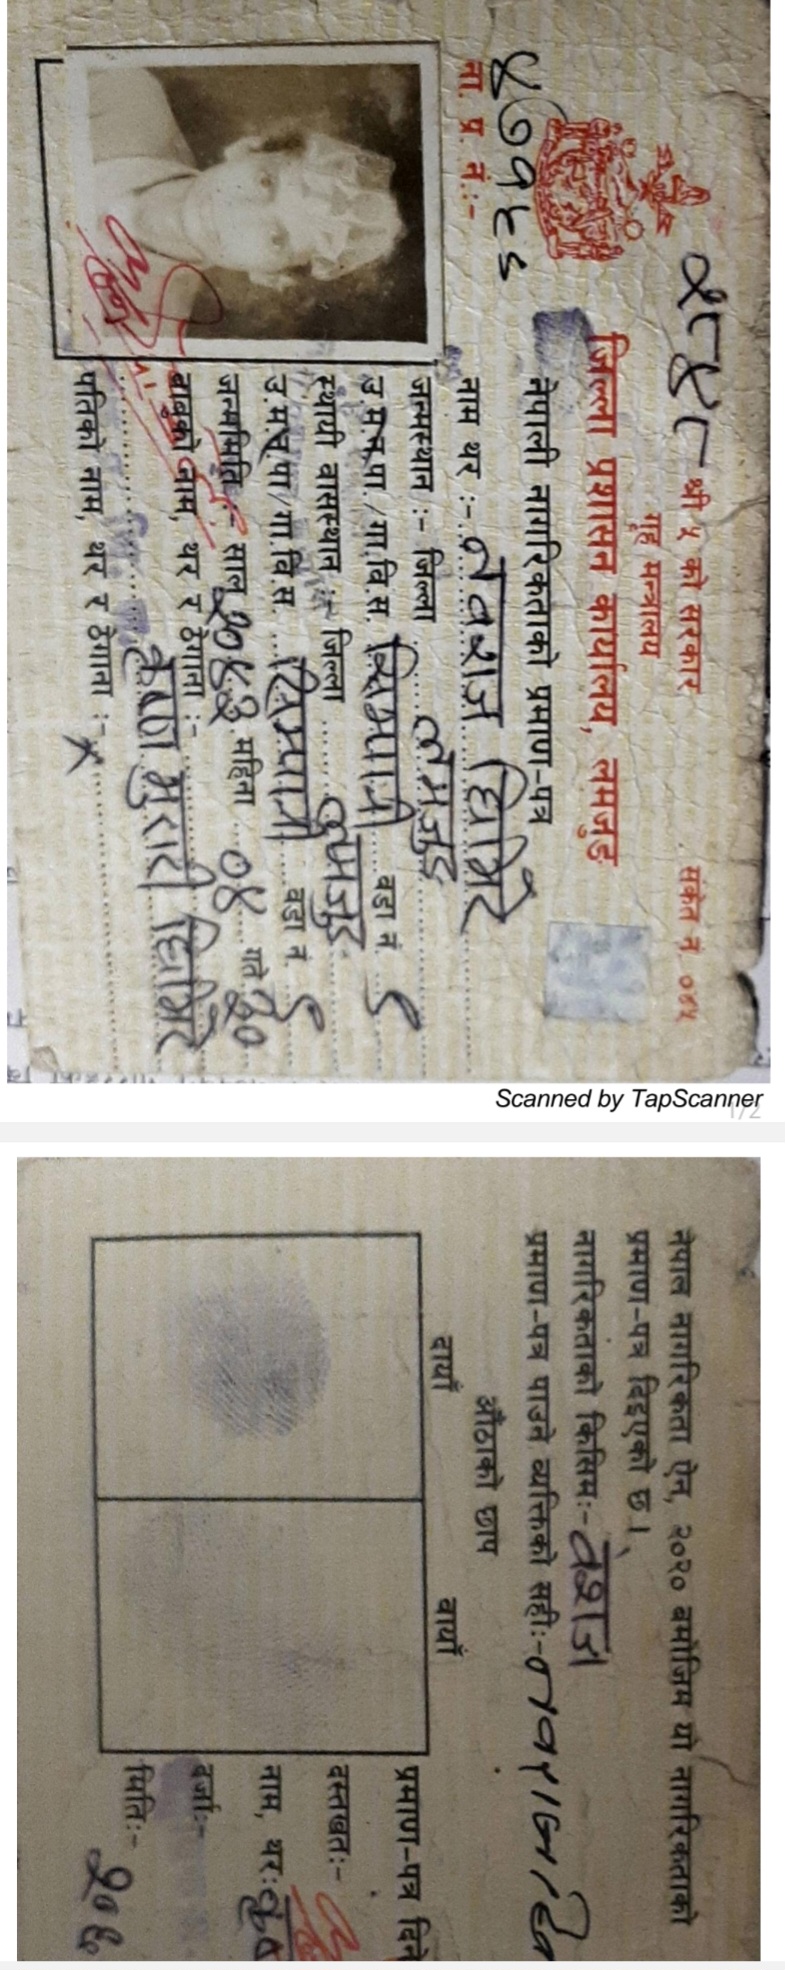 श्री ५ को सरकार
गृह मन्त्रालय
संकेत नं. ०४५
जिल्ला प्रशासन कार्यालय, लमजुङ
नेपाली नागरिकताको प्रमाण-पत्र
ना. प्र. नं.:-
नाम थर :- नवराज घिमिरे
जन्मस्थान :- जिल्ला लमजुङ
उ.म.न.पा./गा.वि.स. वडा नं. ९
स्थायी बासस्थान :- जिल्ला लमजुङ
उ.म.न.पा/गा.वि.स. वडा नं. ९
जन्ममिति :- साल महिना ०४ गते
बाबुको नाम, थर र ठेगाना :-
मुरारी घिमिरे
पतिको नाम, थर र ठेगाना :- x
Scanned by TapScanner
1/2
नेपाल नागरिकता ऐन, २०२० बमोजिम यो नागरिकताको
प्रमाण-पत्र दिइएको छ।
नागरिकताको किसिम:- वंशज
प्रमाण-पत्र पाउने व्यक्तिको सही:- नवराज
औंठाको छाप
दायाँ बायाँ
प्रमाण-पत्र दिने
दस्तखत:-
नाम, थर:
दर्जा:-
मिति:-